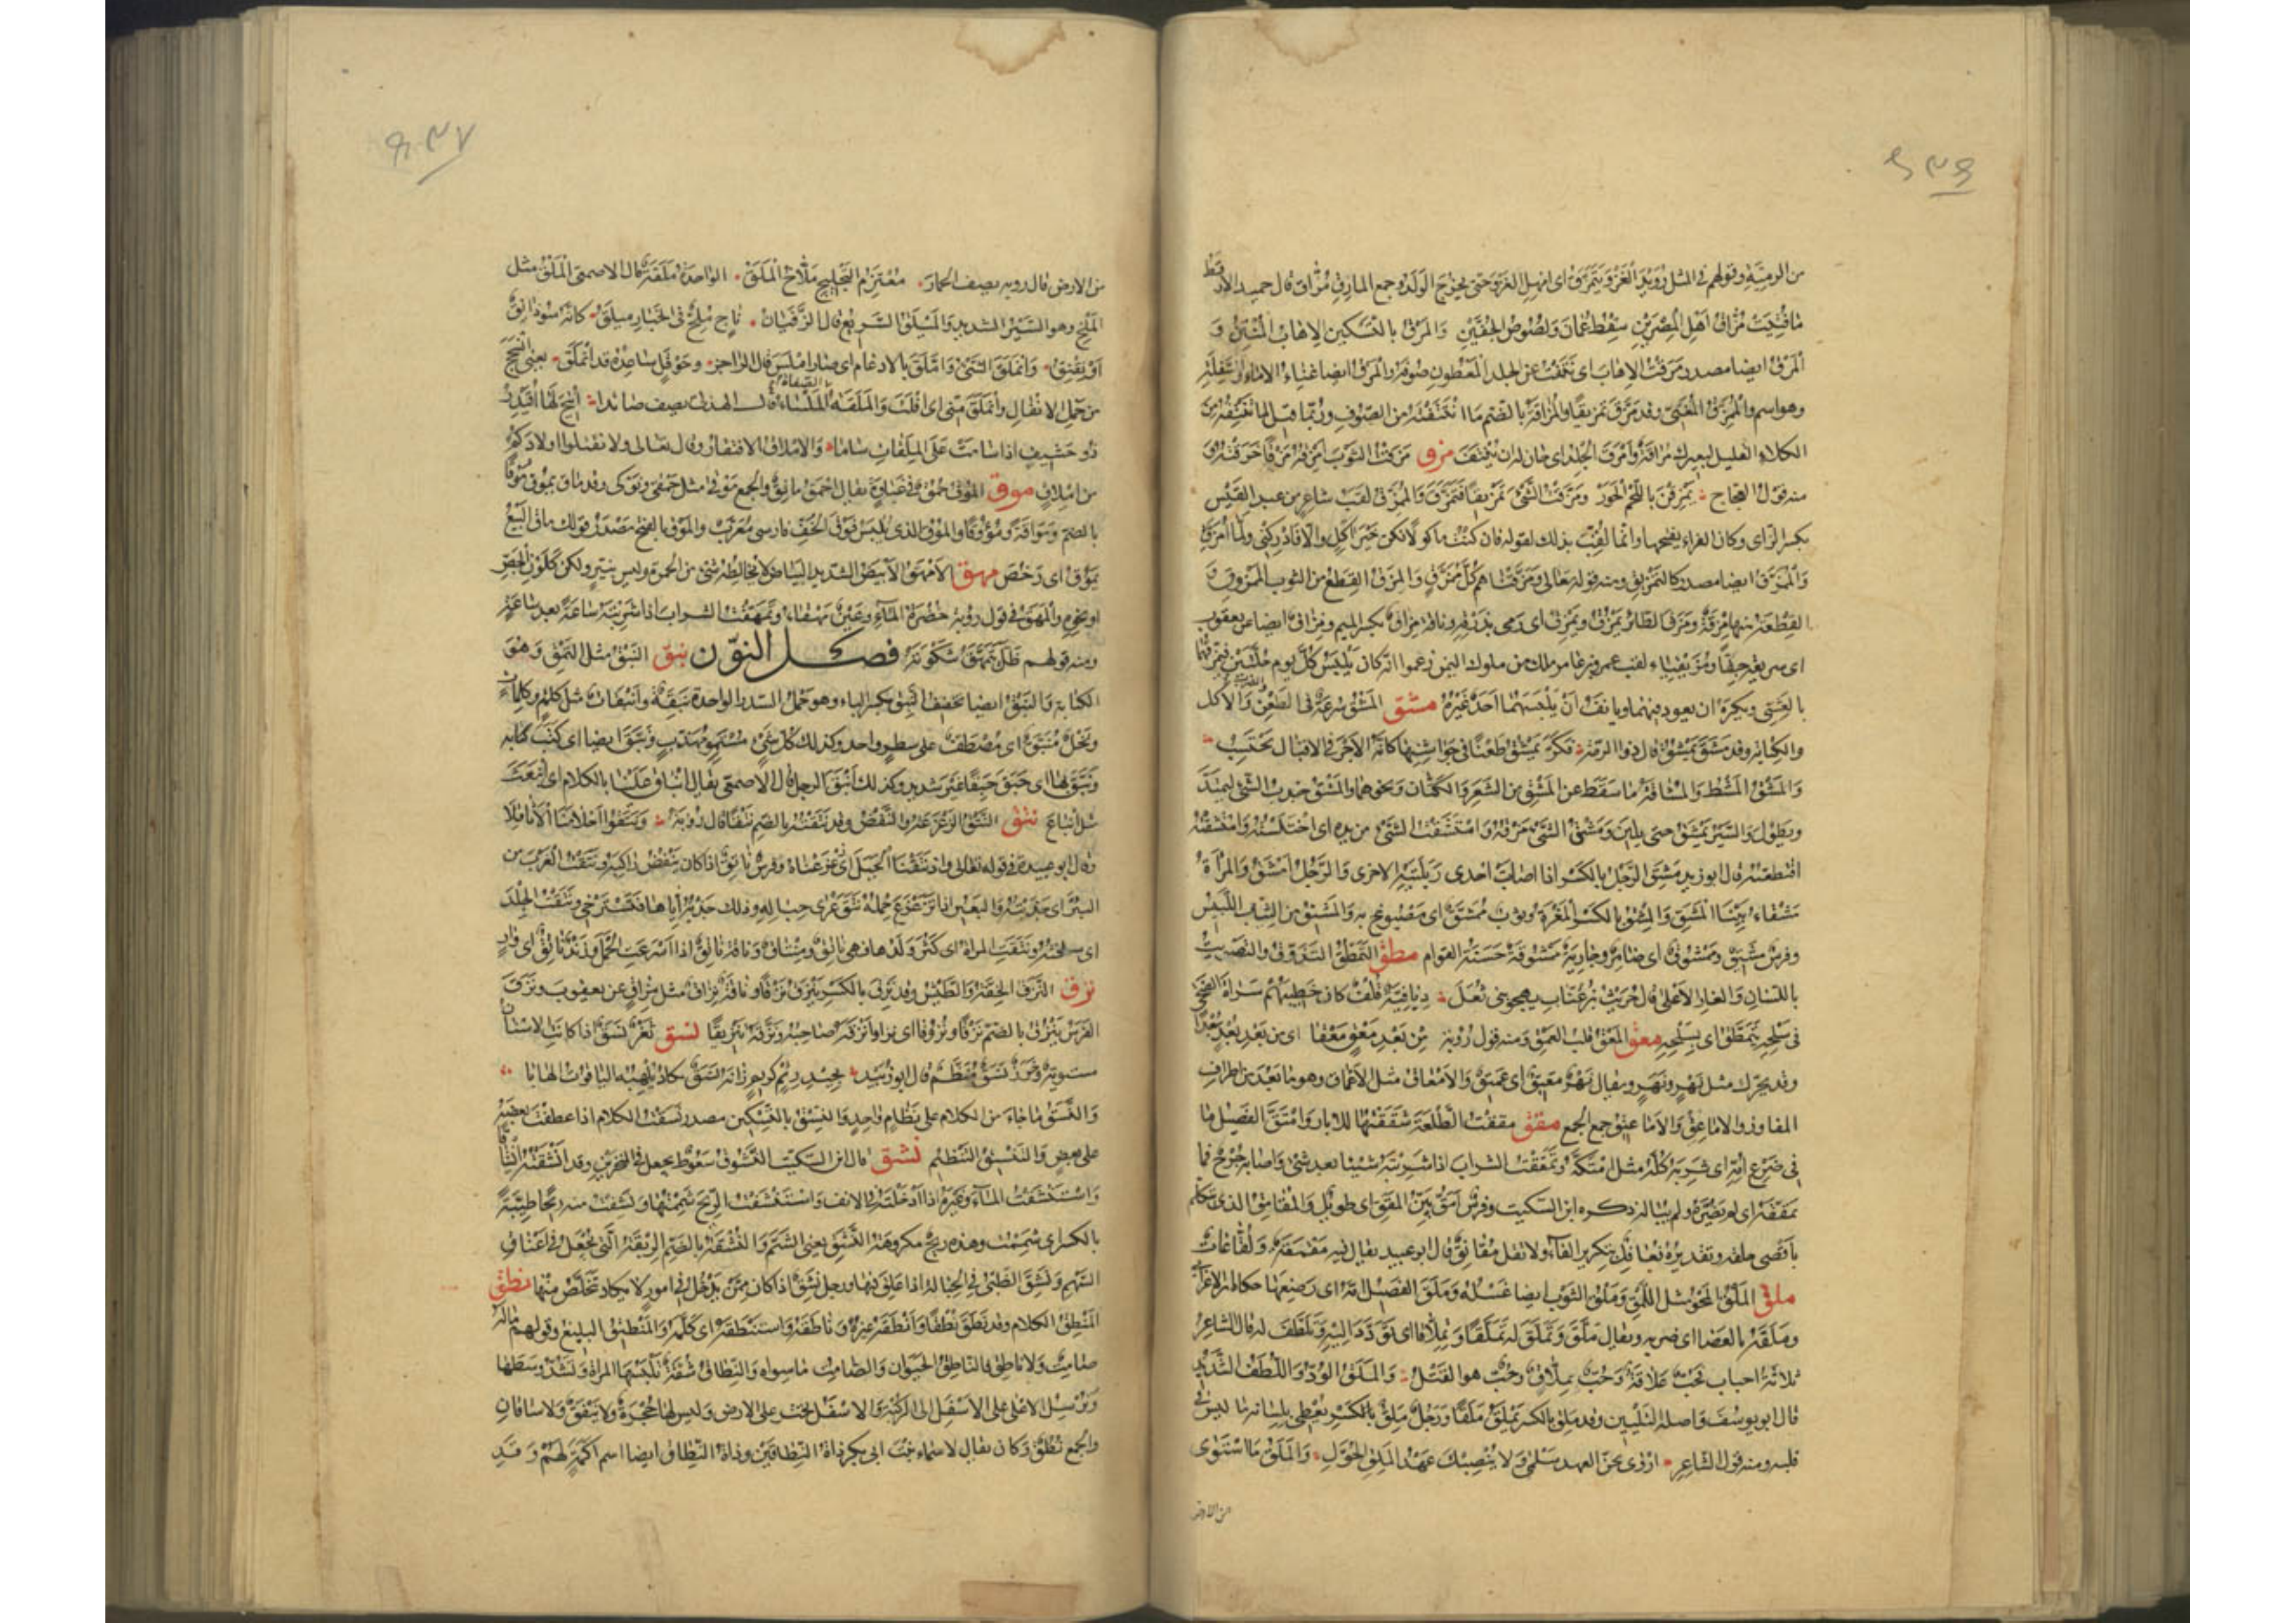 من الرمية وقولهم في المثل رُوَيْدَ الغَزْوَ يَتَمَرَّقْ اى امهل الغزو حتى يخرج الولد وجمع المارق مُرَّاق قال حميد الارقط
ما فتئت مُرَّاق اهل المصرين سقط عمان ولصوص الجفين والمرق بالتسكين الاهاب المنتن و
المرق ايضا مصدر مرقت الاهاب اى نتفت عن الجلد المعطون صوفه والمرق ايضا غناء الاماء والسفلة
وهو اسم والممرق المغنى وقد مرّق تمريقا والمراقة بالضم ما انتتفته من الصوف وربما قيل لما تنتفه من
الكلاء القليل لبعيرك مراقة وامرق الجلد اى حان له ان ينتف مزق مزقت الثوب امزقه مزقا خرقته و
منه قول العجاج يمزقن باللحم الحور ومزقت الشئ تمزيقا فتمزق والممزق لقب شاعر من عبد القيس
بكسر الزاى وكان الفراء يفتحها وانما لقب بذلك لقوله فان كنت ماكولا فكن خير آكل والا فادركنى ولما امزق
والممزق ايضا مصدر كالتمزيق ومنه قوله تعالى ومزقناهم كل ممزق والمزق القطع من الثوب الممزوق و
القطعة منها مزقة ومزق الطائر يمزق ويمزق اى رمى بذرقه وناقة مزاق بكسر الميم ونزاق ايضا عن يعقوب
اى سريعة جدا ومزيقياء لقب عمرو بن عامر ملك من ملوك اليمن زعموا انه كان يلبس كل يوم حلتين فيمزقهما
بالعشى ويكره ان يعود فيهما ويانف ان يلبسهما احد غيره مشق المشق سرعة فى الطعن والضرب والاكل
والكتابة وقد مشق يمشق قال ذو الرمة فكر يمشق طعنا فى جواشنها كانه الاجر فى الاقبال يحتسب
والمشق المشط والمشاقة ما سقط عن المشق من الشعر والكتان ونحوهما والمشق جذب الشئ ليمتد
ويطول والسير يمشق حتى يلين ومشق الشئ مزقه وامتشقت الشئ من يده اى اختلسته وامتشقته
اقتطعته قال ابو زيد مشق الرجل بالكسر اذا اصابت احدى ربلتيه الاخرى والرجل امشق والمرأة
مشقاء بينا المشق والمشق بالكسر المغرة وثوب ممشق اى مصبوغ به والمشيق من الثياب اللبيس
وفرس مشيق وممشوق اى ضامر وجارية ممشوقة حسنة القوام مطق التمطق التذوق والتصويت
باللسان والغار الاعلى قال حريث بن عتاب يهجو بنى ثعل ديافية قلف كان خطيبهم سراة الضحى
فى سلحه يتمطق اى بسلحه معق المعق قلب العمق ومنه قول رؤبة من بعد معق معقا اى من بعد بعد بعدا
وقد يحرك مثل نهر ونهر ويقال نهر معيق اى عميق والامعاق مثل الاعماق وهو ما بعد من اطراف
المفاوز والاماعق والاماعيق جمع الجمع مقق مققت الطلعة شققتها للابار وامتق الفصيل ما
فى ضرع امه اى شربه كله مثل امتكه وتمققت الشراب اذا شربته شيئا بعد شئ واصابه جرح فما
تمققه اى لم يضره ولم يباله ذكره ابن السكيت وفرس امق بين المقق اى طويل والمقامق الذى يتكلم
باقصى حلقه وتقديره فعافل بتكرير الفاء ولا تقل مقانق قال ابو عبيد يقال فيه مقمقة ولقاعات
ملق الملق المحو مثل اللمق وملق الثوب ايضا غسله وملق الفصيل امه اى رضعها حكاه ابن الاعرابى
وملقه بالعصا اى ضربه ويقال ملق وتملق له تملقا وتملاقا اى تودد اليه وتلطف له قال الشاعر
ثلاثة احباب فحب علاقة وحب تملاق وحب هو القتل والملق الود واللطف الشديد
قال ابو يوسف واصله التليين وقد ملق بالكسر يملق ملقا ورجل ملق بالكسر يعطى بلسانه ما ليس فى
قلبه ومنه قول الشاعر اروى بجن العهد سلمى ولا ينصبك عهد الملق الحول والملق ما استوى
من الارض
من الارض قال رؤبة يصف الحمار معتزم التجليح ملاخ الملق الواحدة ملقة قال الاصمعى الملق مثل
الملخ وهو السير الشديد والميلق السريع قال الزفيان ناج ملح فى الخبار ميلق كانه سوذانق
او نقنق وانملق الشئ واملق بالادغام اى صار املس قال الراجز وحوقل ساعده قد انملق يعنى انسحج
من حمل الاثقال وانملق منى اى افلت والملقة الصفاة الملساء قال الهذلى يصف صائدا اتيح لها اقيدر
ذو حشيف اذا سامت على الملقات ساما والاملاق الافتقار وقال تعالى ولا تقتلوا اولادكم
من املاق موق الموق حمق فى غباوة يقال احمق مائق والجمع موقى مثل حمقى ونوكى وقد ماق يموق موقا
بالضم ومواقة ومؤوقا والموق الذى يلبس فوق الخف فارسى معرب والموق بالفتح مصدر قولك ماق البيع
يموق اى رخص مهق الامهق الابيض الشديد البياض لا يخالطه شئ من الحمرة وليس بنير ولكن كلون الجص
او نحوه والمهق فى قول رؤبة خضرة الماء وعين مهقاء وتمهقت الشراب اذا شربته ساعة بعد ساعة
ومنه قولهم ظل يتمهق شكوته فصل النون نبق النبق مثل النمق وهو
الكتابة والنبق ايضا تخفيف النبق بكسر الباء وهو حمل السدر الواحدة نبقة ونبقات مثل كلم وكلمات
ونخل منبق اى مصطف على سطر واحد وكذلك كل شئ مستو مهذب ونبق ايضا اى كتب كتابه
ونبق بها اى حبق حبقا غير شديد وكذلك انبق الرجل قال الاصمعى يقال انباق علينا بالكلام اى انبعث
مثل انباع نتق النتق الزعزعة والنفض وقد نتقته بالضم نتقا قال رؤبة ونتقوا احلامنا الاثاقلا
وقال ابو عبيدة فى قوله تعالى واذ نتقنا الجبل اى زعزعناه وفرس ناتق اذا كان ينفض راكبه ونتقت الغرب من
البئر اى جذبته والبعير اذا تزعزع حمله نتق عرى حباله وذلك جذبه اياها فتسترخى ونتقت الجلد
اى سلخته ونتقت المراة اى كثر ولدها فهى ناتق ومنتاق وناقة ناتق اذا اسرعت الحمل وزند ناتق اى وار
نزق النزق الخفة والطيش وقد نزق بالكسر ينزق نزقا وناقة نزاق مثل مزاق عن يعقوب ونزق
الفرس ينزق بالضم نزقا ونزوقا اى نزا وانزقه صاحبه ونزقه تنزيقا نسق ثغر نسق اذا كانت الاسنان
مستوية وخرز نسق منظم قال ابو زبيد بجيد ريم كريم زانه نسق يكاد يلهبه الياقوت الهابا
والنسق ما جاء من الكلام على نظام واحد والنسق بالتسكين مصدر نسقت الكلام اذا عطفت بعضه
على بعض والتنسيق التنظيم نشق قال ابن السكيت النشوق سعوط يجعل فى المنخرين وقد انشقته انشاقا
واستنشقت الماء وغيره اذا ادخلته فى الانف واستنشقت الريح شممتها ونشقت منه ريحا طيبة
بالكسر اى شممت وهذه ريح مكروهة النشق يعنى الشم والنشقة بالضم الربقة التى تجعل فى اعناق
البهم ونشق الظبى فى الحبالة اذا علق فيها ورجل نشق اذا كان ممن يدخل فى امور لا يكاد يتخلص منها نطق
المنطق الكلام وقد نطق نطقا وانطقه غيره وناطقه واستنطقه اى كلمه والمنطيق البليغ وقولهم ماله
صامت ولا ناطق فالناطق الحيوان والصامت ما سواه والنطاق شقة تلبسها المراة وتشد وسطها
وترسل الاعلى على الاسفل الى الركبة والاسفل ينجر على الارض وليس لها حجزة ولا نيفق ولا ساقان
والجمع نطق وكان يقال لاسماء بنت ابى بكر ذاة النطاقين وذاة النطاق ايضا اسم اكمة لهم وقد